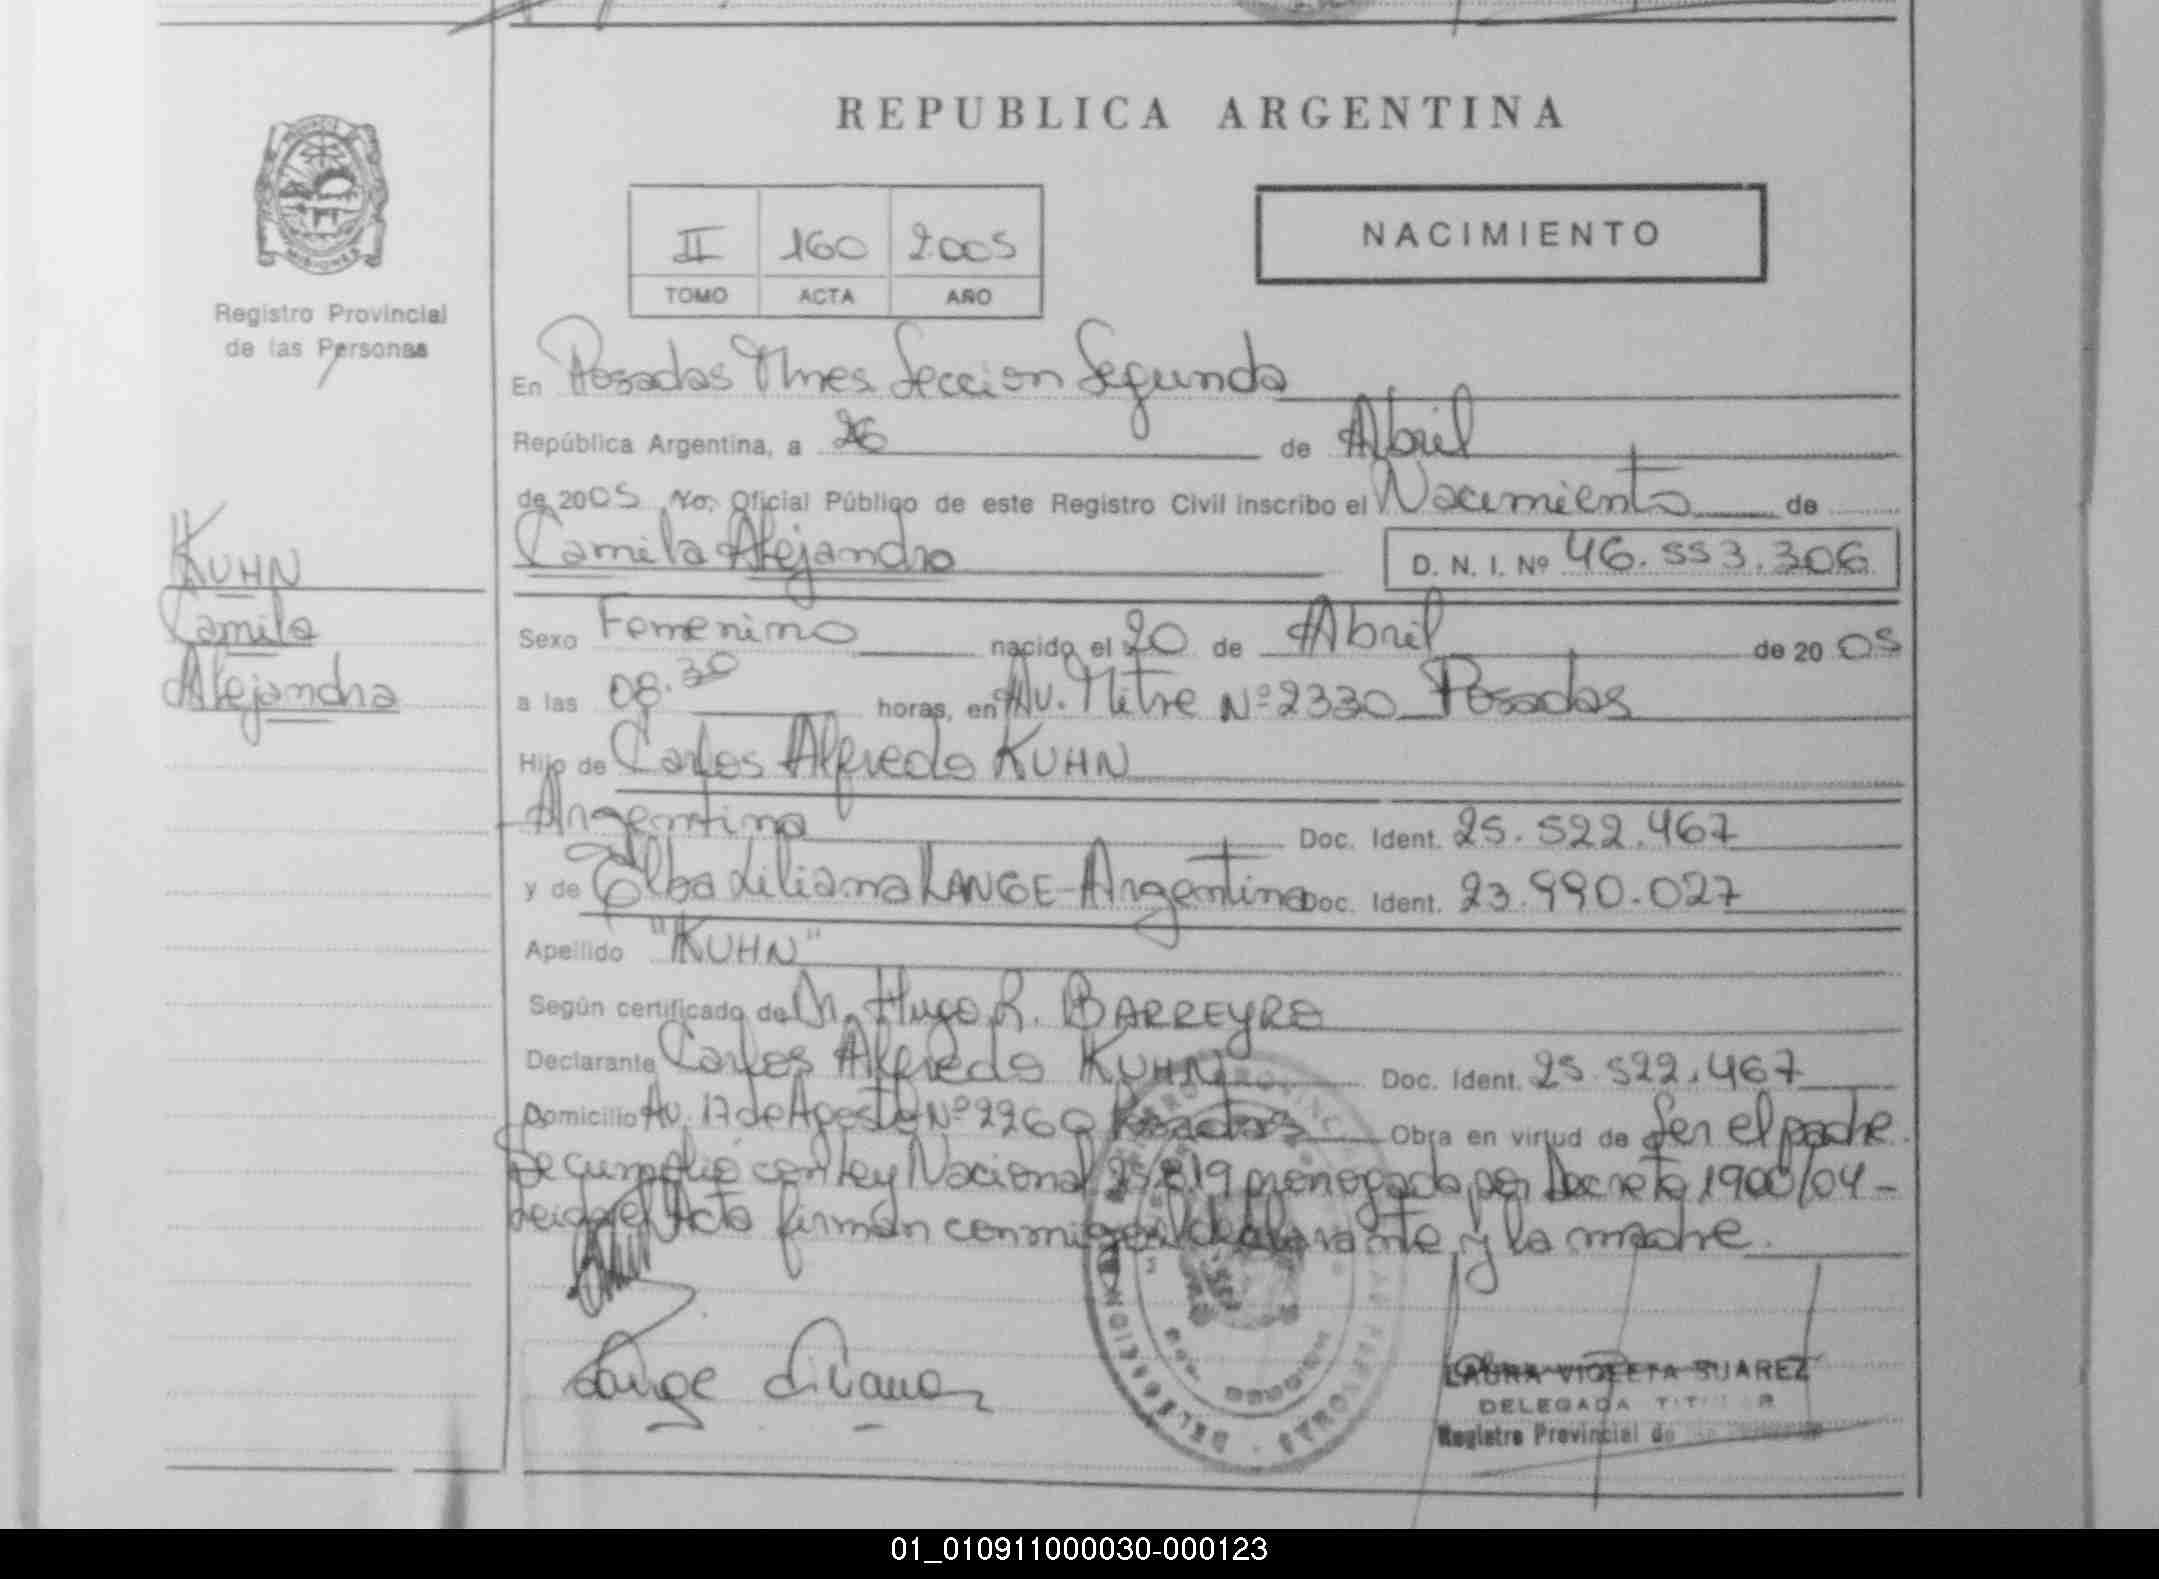 REPUBLICA ARGENTINA
MISIONES
Registro Provincial
de las Personas
II 160 2005
TOMO ACTA AÑO
NACIMIENTO
En Posadas Mnes Seccion Segunda
República Argentina, a 26 de Abril
de 2005 Yo, Oficial Público de este Registro Civil inscribo el Nacimiento de
Camila Alejandra D. N. I. Nº 46.553.306
KUHN
Camila
Alejandra
Sexo Femenino nacido el 20 de Abril de 2005
a las 08.30 horas, en Av. Mitre Nº 2330 Posadas
Hijo de Carlos Alfredo KUHN
Argentina Doc. Ident. 25.522.467
y de Elba Liliana LANGE - Argentina Doc. Ident. 23.990.027
Apellido "KUHN"
Según certificado de Dr. Hugo R. BARREYRO
Declarante Carlos Alfredo KUHN Doc. Ident. 25.522.467
Domicilio Av. 17 de Agosto Nº 2260 Posadas Obra en virtud de Ser el padre.
Se cumplió con Ley Nacional 25819 prorrogada por Decreto 1900/04 -
Leida el Acta firman conmigo el declarante y la madre.
Lange Liliana
LAURA VIOLETA SUAREZ
DELEGADA TITULAR
Registro Provincial de
01_010911000030-000123